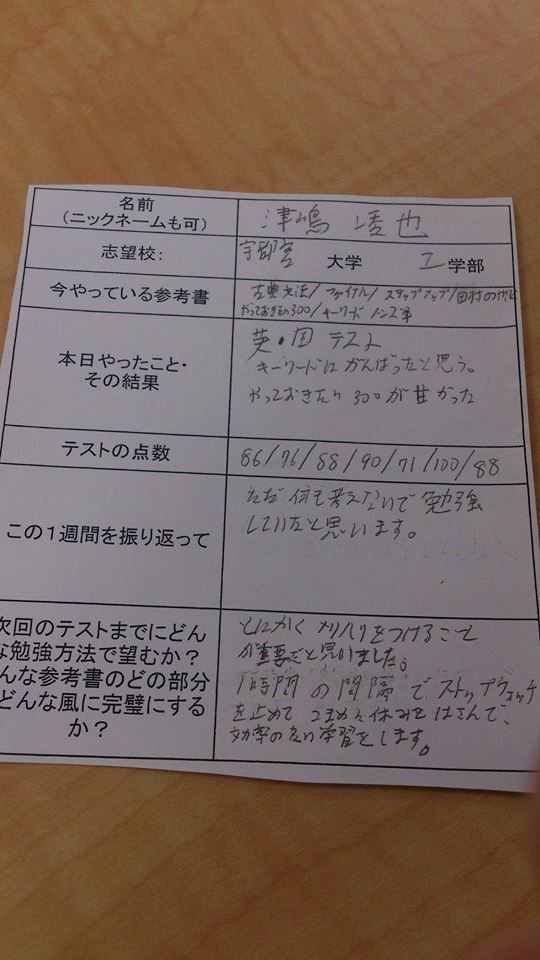 名前
(ニックネームも可)
津嶋 也
志望校:
宇都宮 大学 工 学部
今やっている参考書
古典文法/ファイナル/ステップアップ/田村の
やっておきたい300/キーワード
本日やったこと・
その結果
英・国 テスト
キーワードはがんばったと思う。
やっておきたい300が甘かった
テストの点数
86/76/88/90/71/100/88
この1週間を振り返って
ただ何も考えないで勉強
していたと思います。
次回のテストまでにどん
な勉強方法で望むか?
んな参考書のどの部分
どんな風に完璧にする
か?
とにかくメリハリをつけること
が重要だと思いました。
1時間の間隔でストップウォッチ
を止めてこまめに休みをはさんで、
効率の良い学習をします。